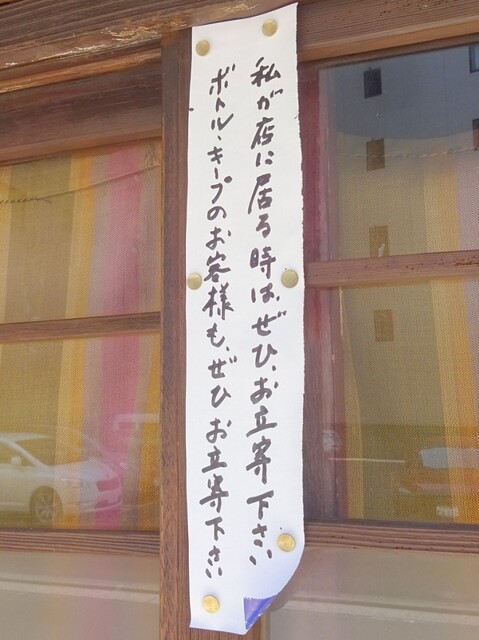 私が店に居る時は、ぜひ、お立寄下さい
ボトル・キープのお客様も、ぜひお立寄下さい